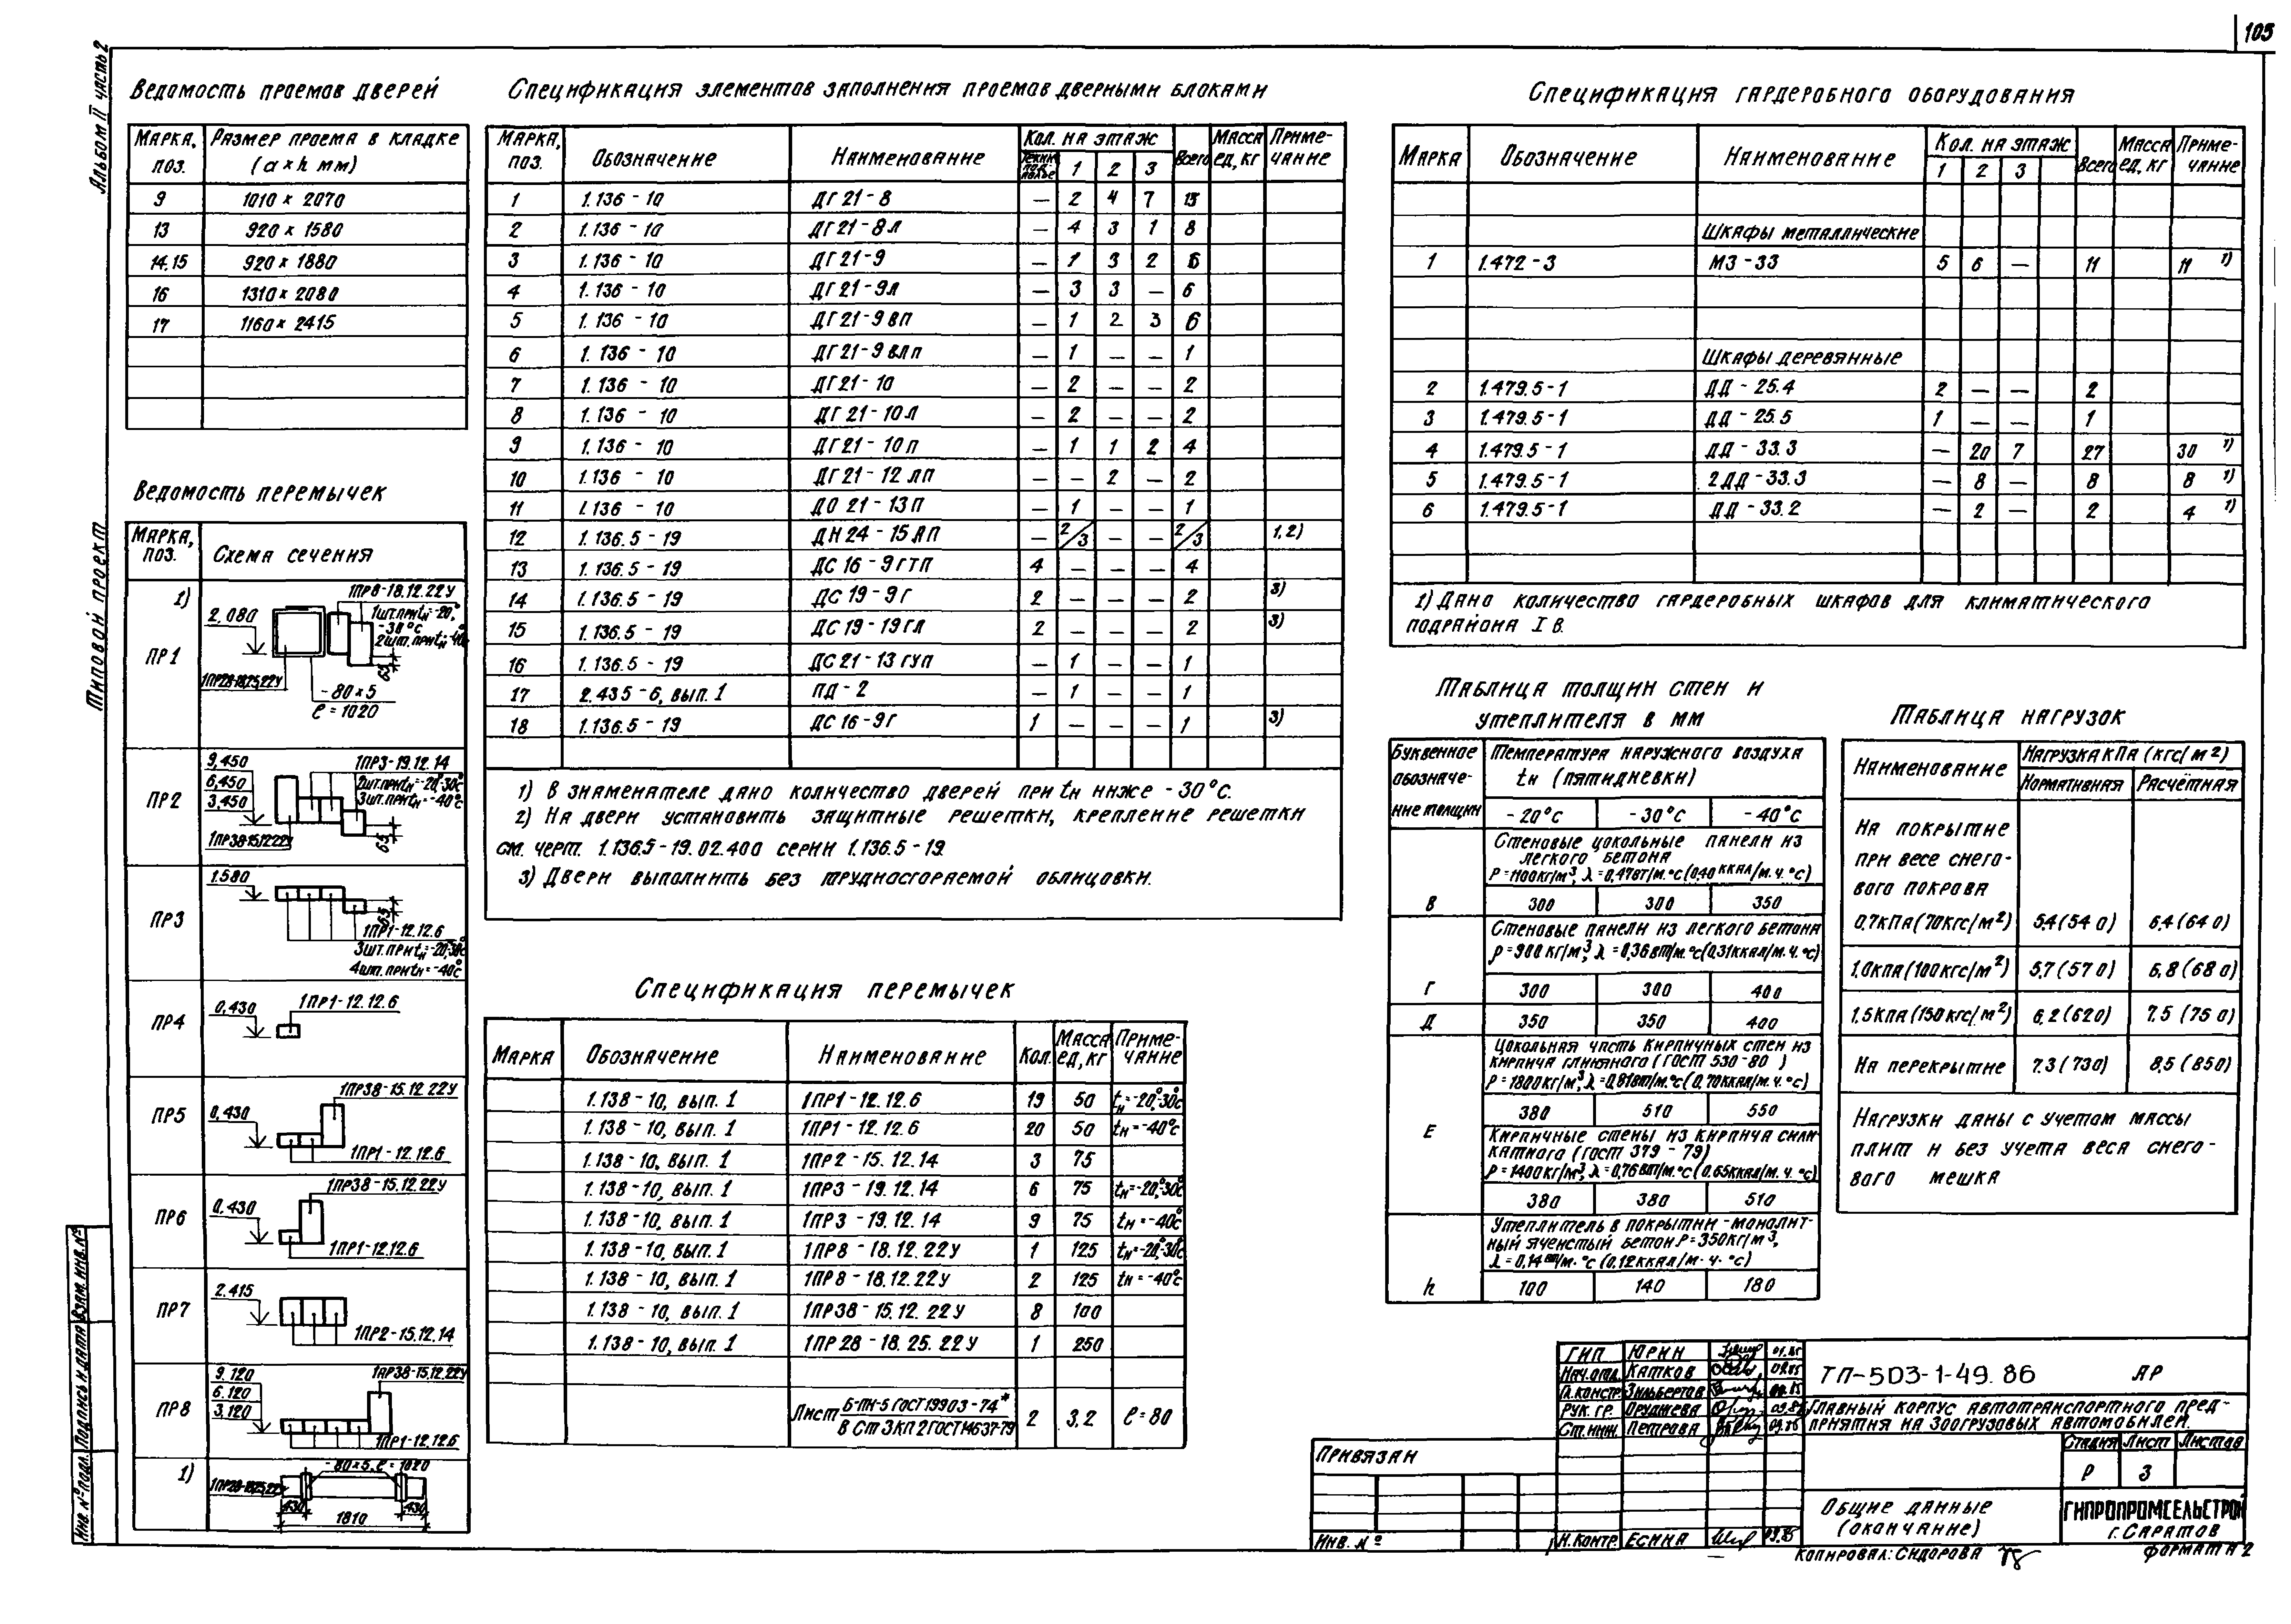 105
Альбом II часть 2
Типовой проект
Ведомость проемов дверей
Марка, поз. | Размер проема в кладке (a×h мм)
9 | 1010 × 2070
13 | 920 × 1580
14,15 | 920 × 1880
16 | 1310 × 2080
17 | 1160 × 2415
Ведомость перемычек
Марка, поз. | Схема сечения
ПР1
1)
2.080
1ПР8-18.12.22У
1шт.при tн=-20°,
-30°С
2шт.при tн=-40°
65
1ПР28-18.25.22У
-80×5
ℓ=1020
ПР2
9,450
6,450
3,450
1ПР3-19.12.14
2шт.при tн=-20°,-30°С
3шт.при tн=-40°С
1ПР38-15.12.22У
65
ПР3
1.580
65
1ПР1-12.12.6
3шт.при tн=-20°,-30°С
4шт.при tн=-40°С
ПР4
0,430
1ПР1-12.12.6
ПР5
1ПР38-15.12.22У
0,430
1ПР1-12.12.6
ПР6
1ПР38-15.12.22У
0.430
1ПР1-12.12.6
ПР7
2.415
1ПР2-15.12.14
ПР8
9.120
6.120
3.120
1ПР38-15.12.22У
1ПР1-12.12.6
1)
-80×5, ℓ=1020
1ПР28-18.25.22У
430
430
1810
Спецификация элементов заполнения проемов дверными блоками
Марка, поз. | Обозначение | Наименование | Кол. на этаж | Всего | Масса ед, кг | Приме-чание
Техническое подполье | 1 | 2 | 3
1 | 1.136-10 | ДГ21-8 | — | 2 | 4 | 7 | 13
2 | 1.136-10 | ДГ21-8л | — | 4 | 3 | 1 | 8
3 | 1.136-10 | ДГ21-9 | — | 1 | 3 | 2 | 6
4 | 1.136-10 | ДГ21-9л | — | 3 | 3 | — | 6
5 | 1.136-10 | ДГ21-9вп | — | 1 | 2 | 3 | 6
6 | 1.136-10 | ДГ21-9влп | — | 1 | — | — | 1
7 | 1.136-10 | ДГ21-10 | — | 2 | — | — | 2
8 | 1.136-10 | ДГ21-10л | — | 2 | — | — | 2
9 | 1.136-10 | ДГ21-10п | — | 1 | 1 | 2 | 4
10 | 1.136-10 | ДГ21-12лп | — | — | 2 | — | 2
11 | 1.136-10 | ДО21-13П | — | 1 | — | — | 1
12 | 1.136.5-19 | ДН24-15АП | — | 2/3 | — | — | 2/3 | 1,2)
13 | 1.136.5-19 | ДС16-9гтп | 4 | — | — | — | 4
14 | 1.136.5-19 | ДС19-9г | 2 | — | — | — | 2 | 3)
15 | 1.136.5-19 | ДС19-19гл | 2 | — | — | — | 2 | 3)
16 | 1.136.5-19 | ДС21-13гуп | — | 1 | — | — | 1
17 | 2.435-6, вып.1 | ПД-2 | — | 1 | — | — | 1
18 | 1.136.5-19 | ДС16-9г | 1 | — | — | — | 1 | 3)
1) В знаменателе дано количество дверей при tн ниже -30°С.
2) На двери установить защитные решетки, крепление решетки
см. черт. 1.136.5-19.02.400 серии 1.136.5-19.
3) Двери выполнить без трудносгораемой облицовки.
Спецификация перемычек
Марка | Обозначение | Наименование | Кол. | Масса ед, кг | Приме-чание
1.138-10, вып.1 | 1ПР1-12.12.6 | 19 | 50 | tн=-20°,-30°С
1.138-10, вып.1 | 1ПР1-12.12.6 | 20 | 50 | tн=-40°С
1.138-10, вып.1 | 1ПР2-15.12.14 | 3 | 75
1.138-10, вып.1 | 1ПР3-19.12.14 | 6 | 75 | tн=-20°,-30°С
1.138-10, вып.1 | 1ПР3-19.12.14 | 9 | 75 | tн=-40°С
1.138-10, вып.1 | 1ПР8-18.12.22У | 1 | 125 | tн=-20°,-30°С
1.138-10, вып.1 | 1ПР8-18.12.22У | 2 | 125 | tн=-40°С
1.138-10, вып.1 | 1ПР38-15.12.22У | 8 | 100
1.138-10, вып.1 | 1ПР28-18.25.22У | 1 | 250
Лист Б-ПН-5 ГОСТ 19903-74* / В Ст3кп2 ГОСТ 14637-79 | 2 | 3.2 | ℓ=80
Спецификация гардеробного оборудования
Марка | Обозначение | Наименование | Кол. на этаж | Всего | Масса ед, кг | Приме-чание
1 | 2 | 3
Шкафы металлические
1 | 1.472-3 | МЗ-33 | 5 | 6 | — | 11 | 11 1)
Шкафы деревянные
2 | 1.479.5-1 | ДД-25.4 | 2 | — | — | 2
3 | 1.479.5-1 | ДД-25.5 | 1 | — | — | 1
4 | 1.479.5-1 | ДД-33.3 | — | 20 | 7 | 27 | 30 1)
5 | 1.479.5-1 | 2ДД-33.3 | — | 8 | — | 8 | 8 1)
6 | 1.479.5-1 | ДД-33.2 | — | 2 | — | 2 | 4 1)
1) Дано количество гардеробных шкафов для климатического
подрайона IВ.
Таблица толщин стен и
утеплителя в мм
Буквенное обозначе-ние толщин | Температура наружного воздуха tн (пятидневки)
-20°С | -30°С | -40°С
Стеновые цокольные панели из
легкого бетона
ρ=1100кг/м³, λ=0,47вт/м.°С (0,40ккал/м.ч.°С)
В | 300 | 300 | 350
Стеновые панели из легкого бетона
ρ=900кг/м³, λ=0,36вт/м.°С (0,31ккал/м.ч.°С)
Г | 300 | 300 | 400
Д | 350 | 350 | 400
Цокольная часть кирпичных стен из
кирпича глиняного (ГОСТ 530-80)
ρ=1800кг/м³, λ=0,81вт/м.°С (0,70ккал/м.ч.°С)
380 | 510 | 550
Е
Кирпичные стены из кирпича сили-
катного (ГОСТ 379-79)
ρ=1400кг/м³, λ=0,76вт/м.°С (0,65ккал/м.ч.°С)
380 | 380 | 510
Утеплитель в покрытии-монолит-
ный ячеистый бетон ρ=350кг/м³,
λ=0,14вт/м.°С (0,12ккал/м.ч.°С)
h | 100 | 140 | 180
Таблица нагрузок
Наименование | Нагрузка кПа (кгс/м²)
Нормативная | Расчётная
На покрытие
при весе снего-
вого покрова
0,7кПа (70кгс/м²) | 5,4 (540) | 6,4 (640)
1,0кПа (100кгс/м²) | 5,7 (570) | 6,8 (680)
1,5кПа (150кгс/м²) | 6,2 (620) | 7,5 (750)
На перекрытие | 7.3 (730) | 8,5 (850)
Нагрузки даны с учетом массы
плит и без учета веса снего-
вого мешка
ГИП | Юрин | 01.85
Нач.отд. | Катков | 09.85
Гл.констр. | Зильбертов
Рук. гр. | Оруджева
Ст.инж. | Петрова | 09.85
Н.контр. | Есина | 09.85
ТП-503-1-49.86 АР
Главный корпус автотранспортного пред-
приятия на 300 грузовых автомобилей.
Стадия | Лист | Листов
Р | 3
Общие данные
(окончание)
ГИПРОПРОМСЕЛЬСТРОЙ
г. Саратов
Привязан
Инв. №
Копировал: Сидорова
Формат А2
Взам. инв. №
Подпись и дата
Инв. № подл.